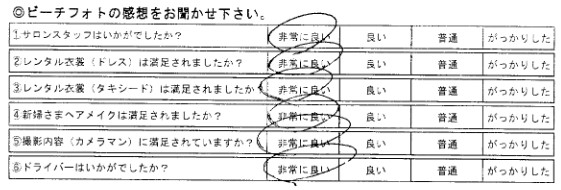 ◎ビーチフォトの感想をお聞かせ下さい。
①サロンスタッフはいかがでしたか? 非常に良い 良い 普通 がっかりした
②レンタル衣裳（ドレス）は満足されましたか? 非常に良い 良い 普通 がっかりした
③レンタル衣裳（タキシード）は満足されましたか 非常に良い 良い 普通 がっかりした
④新婦さまヘアメイクは満足されましたか? 非常に良い 良い 普通 がっかりした
⑤撮影内容（カメラマン）に満足されていますか? 非常に良い 良い 普通 がっかりした
⑥ドライバーはいかがでしたか? 非常に良い 良い 普通 がっかりした